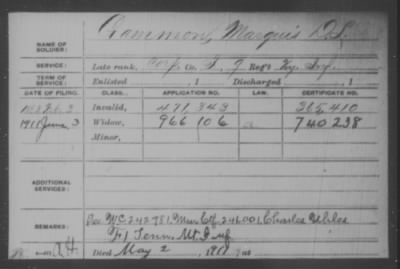 Cammon, Marquis D.L.
NAME OF SOLDIER:
SERVICE: Late rank, Corp. Co. I, 9 Reg't Ky. Inf.
TERM OF SERVICE: Enlisted , 1 Discharged , 1
DATE OF FILING. CLASS. APPLICATION NO. LAW. CERTIFICATE NO.
Invalid, 471,343 365,410
1911 June 3 Widow, 966106 740238
Minor,
ADDITIONAL SERVICES:
REMARKS: WC 242981, Ctf. 246001, Charles
F, 1 Tenn. Mt. Inf.
Died May 2, 191